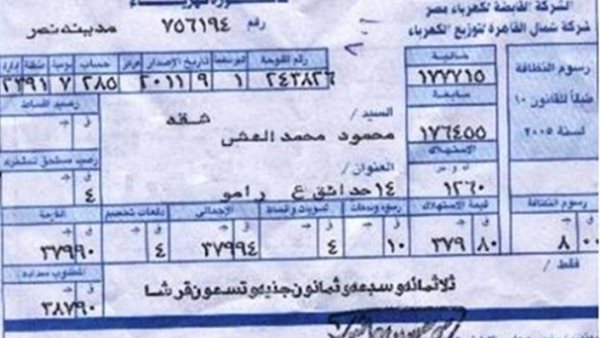 الشركة القابضة لكهرباء مصر
شركة شمال القاهرة لتوزيع الكهرباء
رقم ٧٥٦١٩٤ مدينة نصر
رسوم النظافة
طبقاً للقانون ١٠
لسنة ٢٠٠٥
حالية
١٧٧٧١٥
سابقة
١٧٦٤٥٥
الاستهلاك
ك و س
١٢٦٠
رقم اللوحة تاريخ الإصدار مركز حساب يومية منطقة إدارة
٢٤٣٨٢٦ ١ ٩ ٢٠١١ ٢٨٥ ٧ ٢٣٩١
السيد / شقه
محمود محمد العشى
العنوان /
١٤ حدائق ع رامو
رصيد اقساط
ق ج
رصيد مستحق
ق ج
٤
رسوم النظافة قيمة الاستهلاك رسوم ودمغات تسويات و اقساط الإجمالى دفعات تخصم
ق ج
٨ ٠٠ ٣٧٩ ٨٠ ١٠ ٤ ٣٧٩٩٤ ٤ ٣٧٩٩٠
فقط /
ثلاثمائه وسبعه وثمانون جنيه وتسعون قرشا
المطلوب سداده
ق ج
٣٨٧٩٠